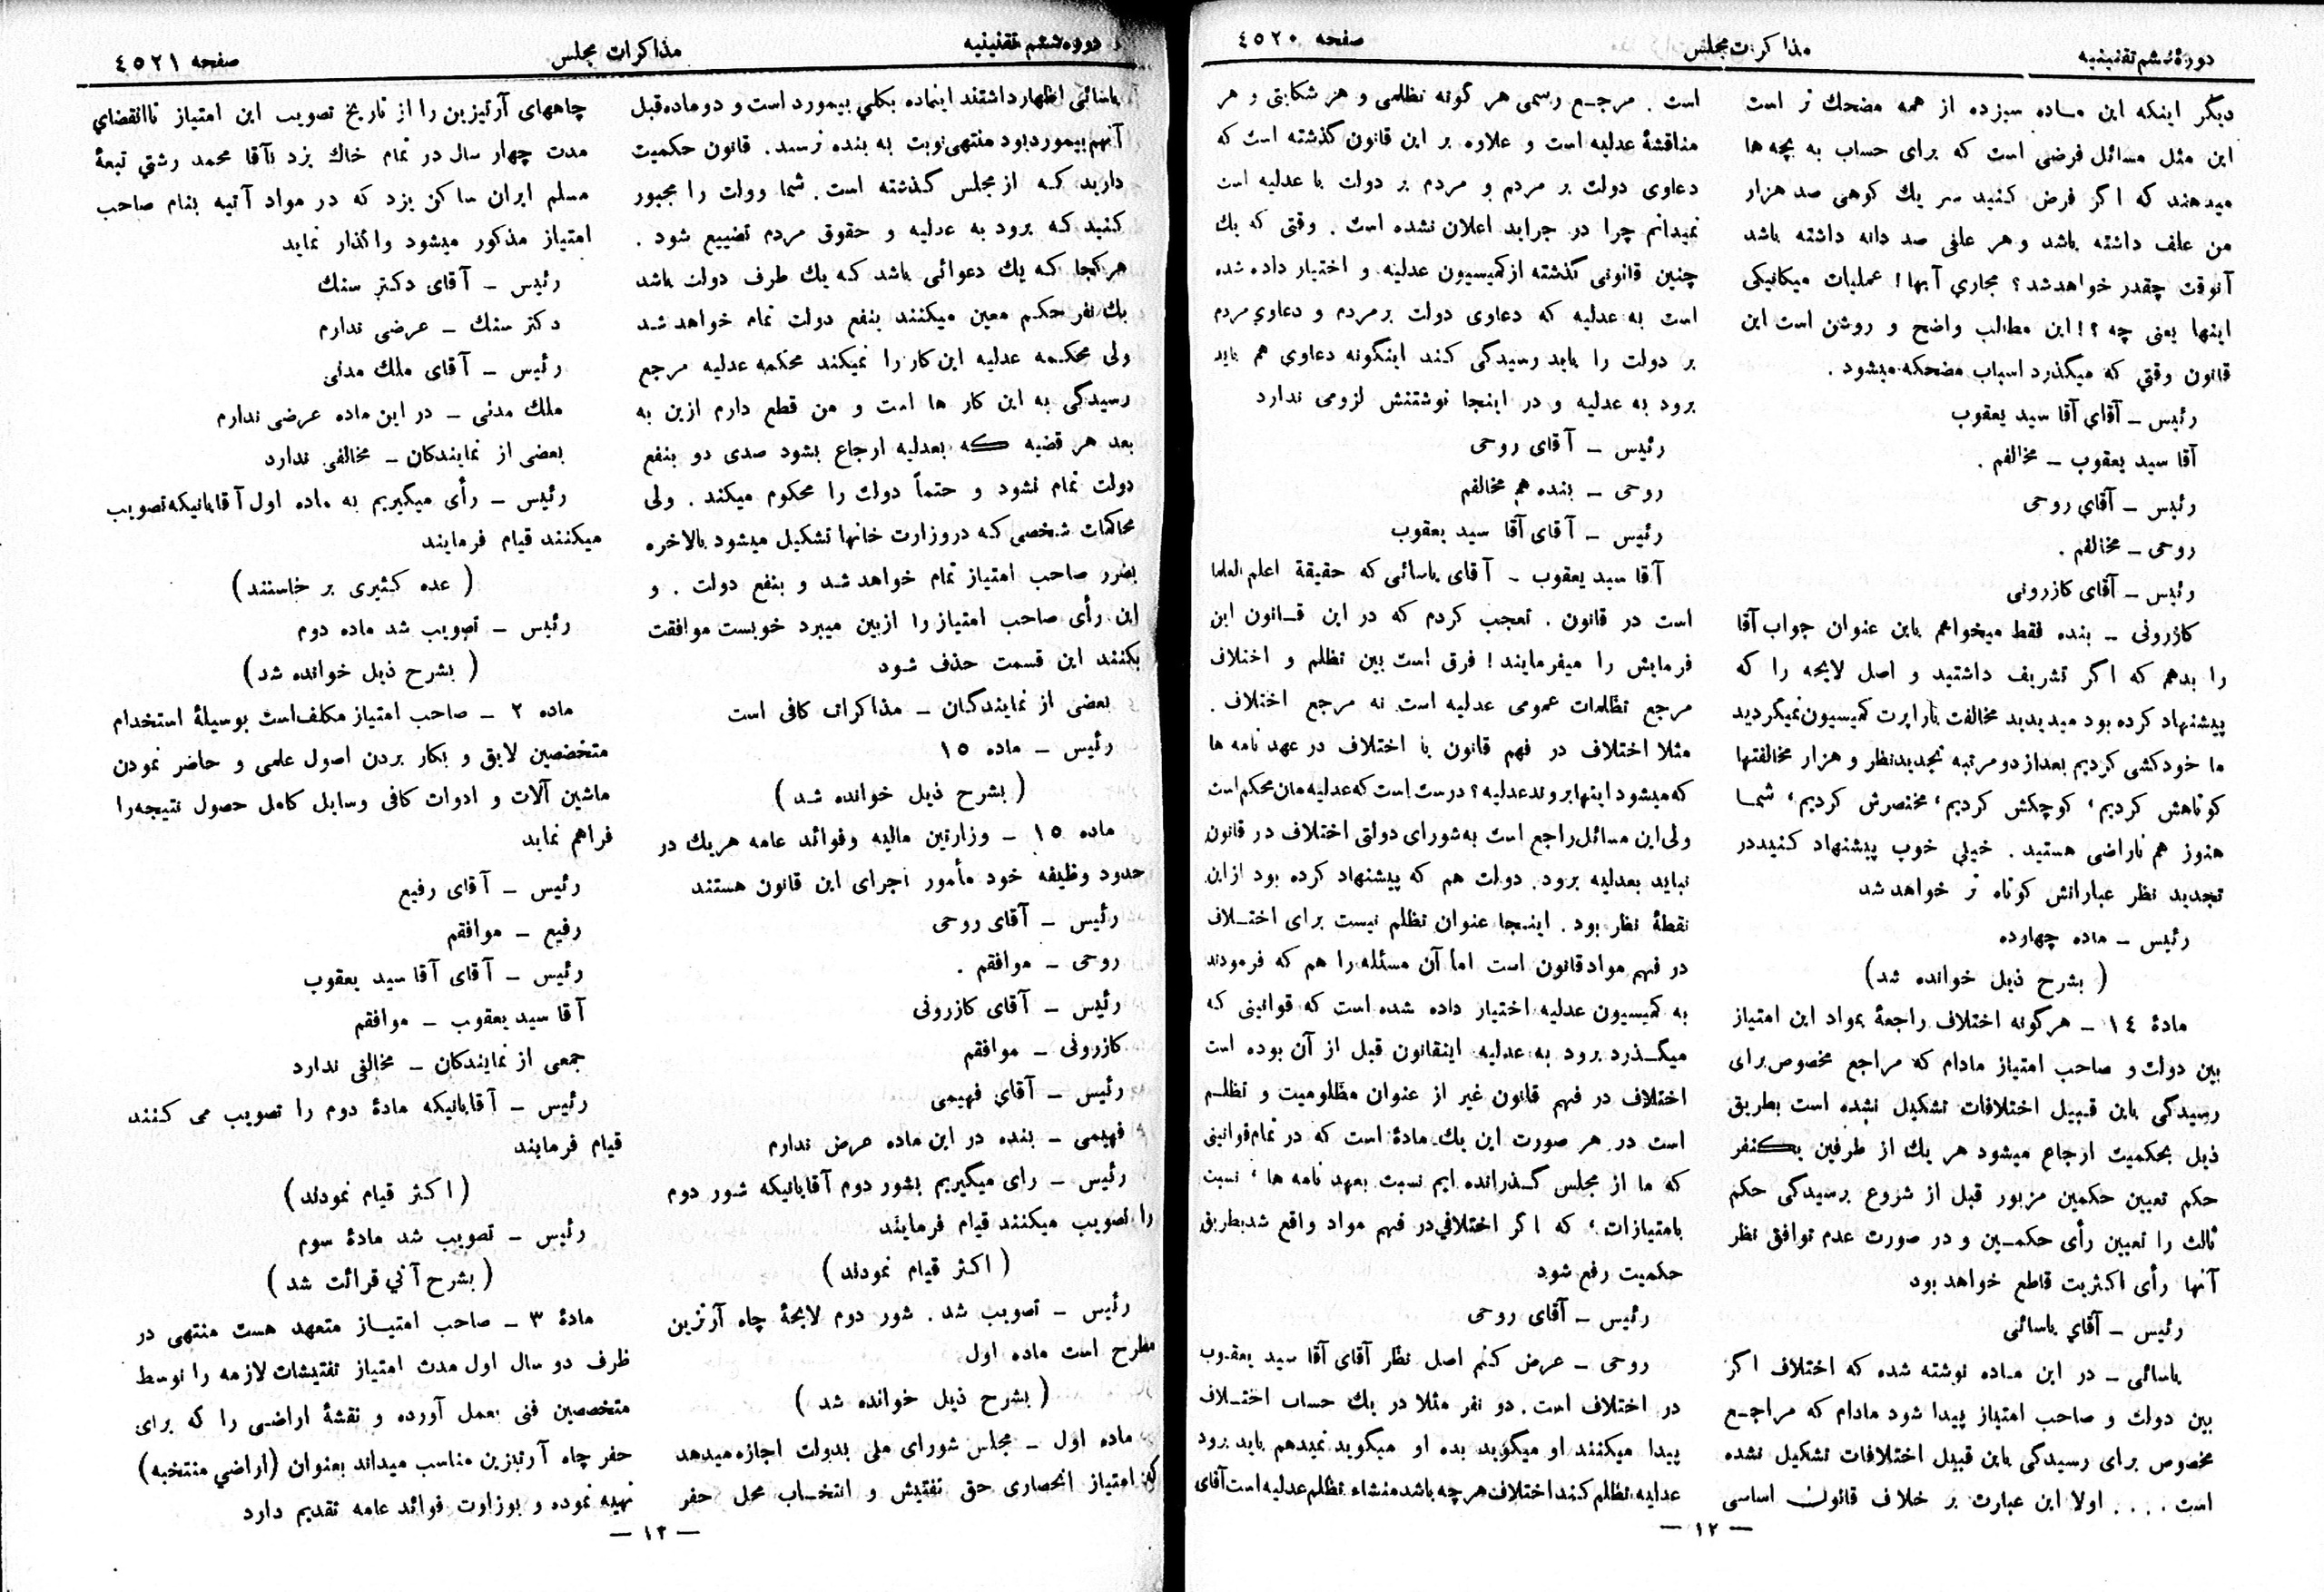 دورهٔ ششم تقنینیه
مذاکرات مجلس
صفحه ٤٥٢٠
دیگر اینکه این ماده سیزده از همه مضحك تر است
این مثل مسائل فرضی است که برای حساب به بچه ها
میدهند که اگر فرض کنید سر یك کوهی صد هزار
من علف داشته باشد و هر علفی صد دانه داشته باشد
آنوقت چقدر خواهد شد ؟ مجاري آبها ! عملیات میکانیکی
اینها یعنی چه ؟ ! این مطالب واضح و روشن است این
قانون وقتي که میگذرد اسباب مضحکه میشود .
رئیس ــ آقاي آقا سید یعقوب
آقا سید یعقوب ــ مخالفم .
رئیس ــ آقاي روحی
روحی ــ مخالفم .
رئیس ــ آقای کازرونی
کازرونی ــ بنده فقط میخواهم باین عنوان جواب آقا
را بدهم که اگر تشریف داشتید و اصل لایحه را که
پیشنهاد کرده بود میدیدید مخالفت باراپرت کمیسیون نمیکردید
ما خودکشی کردیم بعد از دو مرتبه تجدید نظر و هزار مخالفتها
کوتاهش کردیم ، کوچکش کردیم ، مختصرش کردیم ، شما
هنوز هم ناراضی هستید . خیلي خوب پیشنهاد کنید در
تجدید نظر عباراتش کوتاه تر خواهد شد
رئیس ــ ماده چهارده
( بشرح ذیل خوانده شد )
مادهٔ ١٤ ــ هرگونه اختلاف راجعهٔ بمواد این امتیاز
بین دولت و صاحب امتیاز مادام که مراجع مخصوص برای
رسیدگی باین قبیل اختلافات تشکیل نشده است بطریق
ذیل بحکمیت ارجاع میشود هر یك از طرفین یکنفر
حکم تعیین حکمین مزبور قبل از شروع برسیدگی حکم
ثالث را تعیین رأی حکمین و در صورت عدم توافق نظر
آنها رأی اکثریت قاطع خواهد بود
رئیس ــ آقاي یاسائی
یاسائی ــ در این ماده نوشته شده که اختلاف اگر
بین دولت و صاحب امتیاز پیدا شود مادام که مراجع
مخصوص برای رسیدگی باین قبیل اختلافات تشکیل نشده
است . . . . اولا این عبارت بر خلاف قانون اساسی
است . مرجع رسمی هر گونه تظلمی و هر شکایتی و هر
مناقشهٔ عدلیه است و علاوه بر این قانون گذشته است که
دعاوی دولت بر مردم و مردم بر دولت با عدلیه است
نمیدانم چرا در جراید اعلان نشده است . وقتی که یك
چنین قانونی گذشته از کمیسیون عدلیه و اختیار داده شده
است به عدلیه که دعاوی دولت بر مردم و دعاوي مردم
بر دولت را باید رسیدگی کند اینگونه دعاوي هم باید
برود به عدلیه و در اینجا نوشتنش لزومی ندارد
رئیس ــ آقای روحی
روحی ــ بنده هم مخالفم
رئیس ــ آقای آقا سید یعقوب
آقا سید یعقوب ــ آقای یاسائی که حقیقة اعلم العلما
است در قانون . تعجب کردم که در این قانون این
فرمایش را میفرمایند ! فرق است بین تظلم و اختلاف
مرجع تظلمات عمومی عدلیه است نه مرجع اختلاف .
مثلا اختلاف در فهم قانون یا اختلاف در عهد نامه ها
که میشود اینها بروند عدلیه ؟ درست است که عدلیه مان محکم است
ولی این مسائل راجع است به شورای دولتی اختلاف در قانون
نباید بعدلیه برود . دولت هم که پیشنهاد کرده بود از این
نقطهٔ نظر بود . اینجا عنوان تظلم نیست برای اختلاف
در فهم مواد قانون است اما آن مسئله را هم که فرمودند
به کمیسیون عدلیه اختیار داده شده است که قوانینی که
میگذرد برود به عدلیه اینقانون قبل از آن بوده است
اختلاف در فهم قانون غیر از عنوان مظلومیت و تظلم
است در هر صورت این یك مادهٔ است که در تمام قوانینی
که ما از مجلس گذرانده ایم نسبت بعهد نامه ها ، نسبت
بامتیازات ، که اگر اختلافي در فهم مواد واقع شد بطریق
حکمیت رفع شود
رئیس ــ آقای روحی
روحی ــ عرض کنم اصل نظر آقای آقا سید یعقوب
در اختلاف است . دو نفر مثلا در یك حساب اختلاف
پیدا میکنند او میگوید بده او میگوید نمیدهم باید برود
عدلیه تظلم کند اختلاف هر چه باشد منشاء تظلم عدلیه است آقای
— ١٢ —
دوره ششم تقنینیه
مذاکرات مجلس
صفحه ٤٥٢١
یاسائی اظهار داشتند اینماده بکلي بیمورد است و دو ماده قبل
آنهم بیمورد بود منتهی نوبت به بنده نرسید . قانون حکمیت
دارید که از مجلس گذشته است . شما دولت را مجبور
کنید که برود به عدلیه و حقوق مردم تضییع شود .
هر کجا که یك دعوائی باشد که یك طرف دولت باشد
یك نفر حکم معین میکنند بنفع دولت تمام خواهد شد
ولی محکمه عدلیه این کار را نمیکند محکمه عدلیه مرجع
رسیدگی به این کار ها است و من قطع دارم ازین به
بعد هر قضیه که بعدلیه ارجاع بشود صدی دو بنفع
دولت تمام نشود و حتماً دولت را محکوم میکند . ولی
محاکمات شخصی که در وزارت خانها تشکیل میشود بالاخره
بضرر صاحب امتیاز تمام خواهد شد و بنفع دولت . و
این رأی صاحب امتیاز را ازبین میبرد خوبست موافقت
بکنند این قسمت حذف شود
بعضی از نمایندگان ــ مذاکرات کافی است
رئیس ــ ماده ١٥
( بشرح ذیل خوانده شد )
ماده ١٥ ــ وزارتین مالیه وفوائد عامه هریك در
حدود وظیفه خود مأمور اجرای این قانون هستند
رئیس ــ آقای روحی
روحی ــ موافقم .
رئیس ــ آقای کازرونی
کازرونی ــ موافقم
رئیس ــ آقای فهیمی
فهیمی ــ بنده در این ماده عرض ندارم
رئیس ــ رای میگیریم بشور دوم آقایانیکه شور دوم
را تصویب میکنند قیام فرمایند
( اکثر قیام نمودند )
رئیس ــ تصویب شد . شور دوم لایحهٔ چاه آرتزین
مطرح است ماده اول
( بشرح ذیل خوانده شد )
ماده اول ــ مجلس شورای ملی بدولت اجازه میدهد
که امتیاز انحصاری حق تفتیش و انتخاب محل حفر
چاههای آرتیزین را از تاریخ تصویب این امتیاز تاانقضاي
مدت چهار سال در تمام خاك یزد بآقا محمد رشتي تبعهٔ
مسلم ایران ساکن یزد که در مواد آتیه بنام صاحب
امتیاز مذکور میشود واگذار نماید
رئیس ــ آقای دکتر سنك
دکتر سنك ــ عرضی ندارم
رئیس ــ آقای ملك مدنی
ملك مدنی ــ در این ماده عرضی ندارم
بعضی از نمایندکان ــ مخالفی ندارد
رئیس ــ رأی میگیریم به ماده اول آقایانیکه تصویب
میکنند قیام فرمایند
( عده کثیری بر خاستند )
رئیس ــ تصویب شد ماده دوم
( بشرح ذیل خوانده شد )
ماده ٢ ــ صاحب امتیاز مکلف است بوسیلهٔ استخدام
متخصصین لایق و بکار بردن اصول علمی و حاضر نمودن
ماشین آلات و ادوات کافی وسایل کامل حصول نتیجه را
فراهم نماید
رئیس ــ آقای رفیع
رفیع ــ موافقم
رئیس ــ آقای آقا سید یعقوب
آقا سید یعقوب ــ موافقم
جمعی از نمایندکان ــ مخالفی ندارد
رئیس ــ آقایانیکه مادهٔ دوم را تصویب می کنند
قیام فرمایند
( اکثر قیام نمودند )
رئیس ــ تصویب شد مادهٔ سوم
( بشرح آتي قرائت شد )
مادهٔ ٣ ــ صاحب امتیاز متعهد هست منتهی در
ظرف دو سال اول مدت امتیاز تفتیشات لازمه را توسط
متخصصین فنی بعمل آورده و نقشهٔ اراضی را که برای
حفر چاه آرتیزین مناسب میداند بعنوان (اراضي منتخبه)
تهیه نموده و بوزارت فوائد عامه تقدیم دارد
— ١٣ —